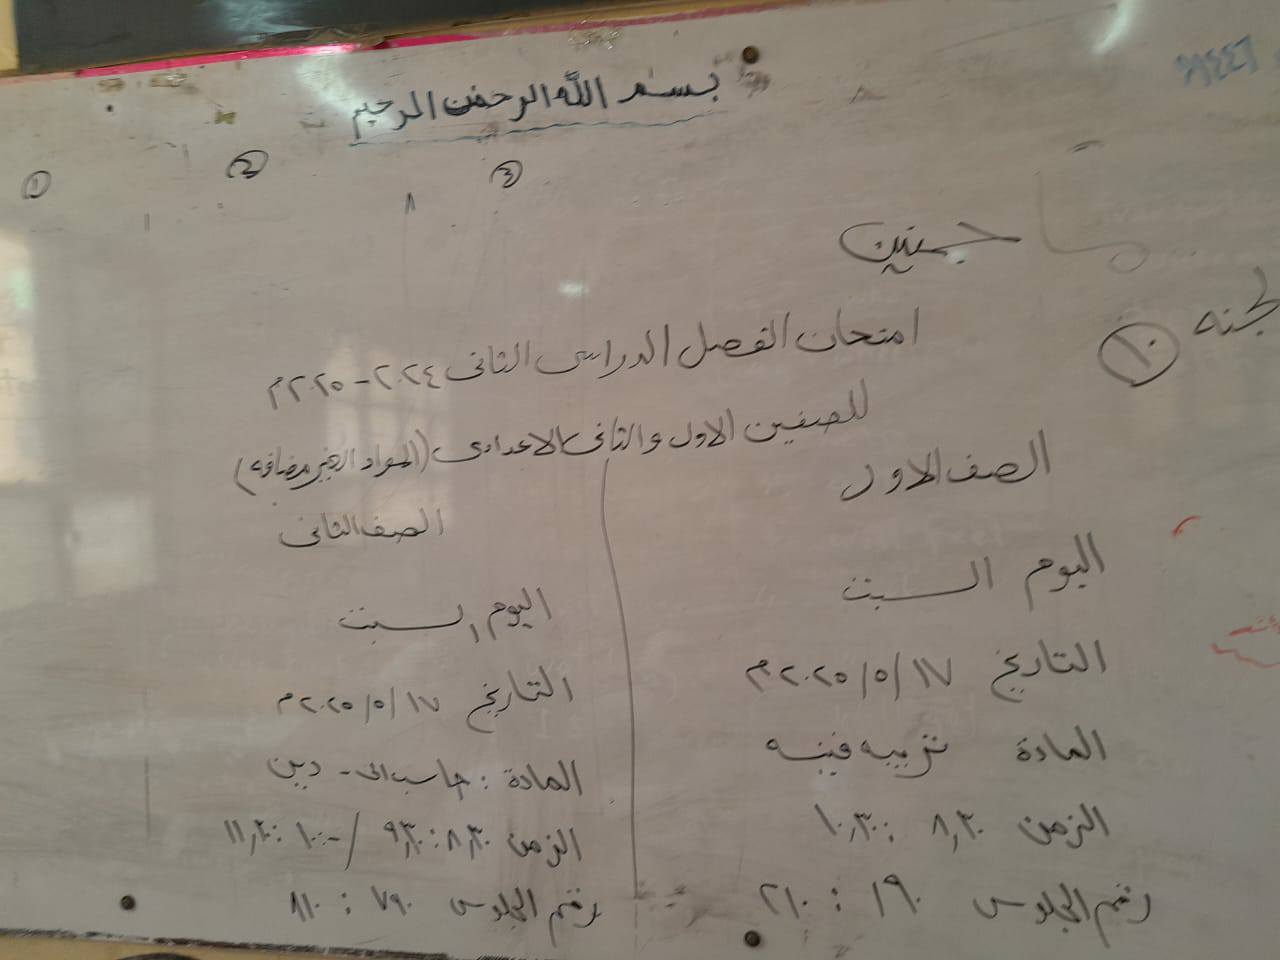 بسم الله الرحمن الرحيم
١ ٢ ٣
لجنه ١٠
امتحان الفصل الدراسى الثانى ٢٠٢٤ - ٢٠٢٥م
للصفين الاول والثانى الاعدادى (المواد الغير مضافه)
الصف الاول
اليوم السبت
التاريخ ١٧/٥/٢٠٢٥م
المادة تربيه فنيه
الزمن ٨,٣٠ : ١٠,٣٠
رقم الجلوس ١٩٠ : ٢١٠
الصف الثانى
اليوم السبت
التاريخ ١٧/٥/٢٠٢٥م
المادة : حاسب الى - دين
الزمن ٨,٣٠ : ٩,٣٠ / ١٠,٠٠ : ١١,٣٠
رقم الجلوس ٧٩٠ : ٨١٠